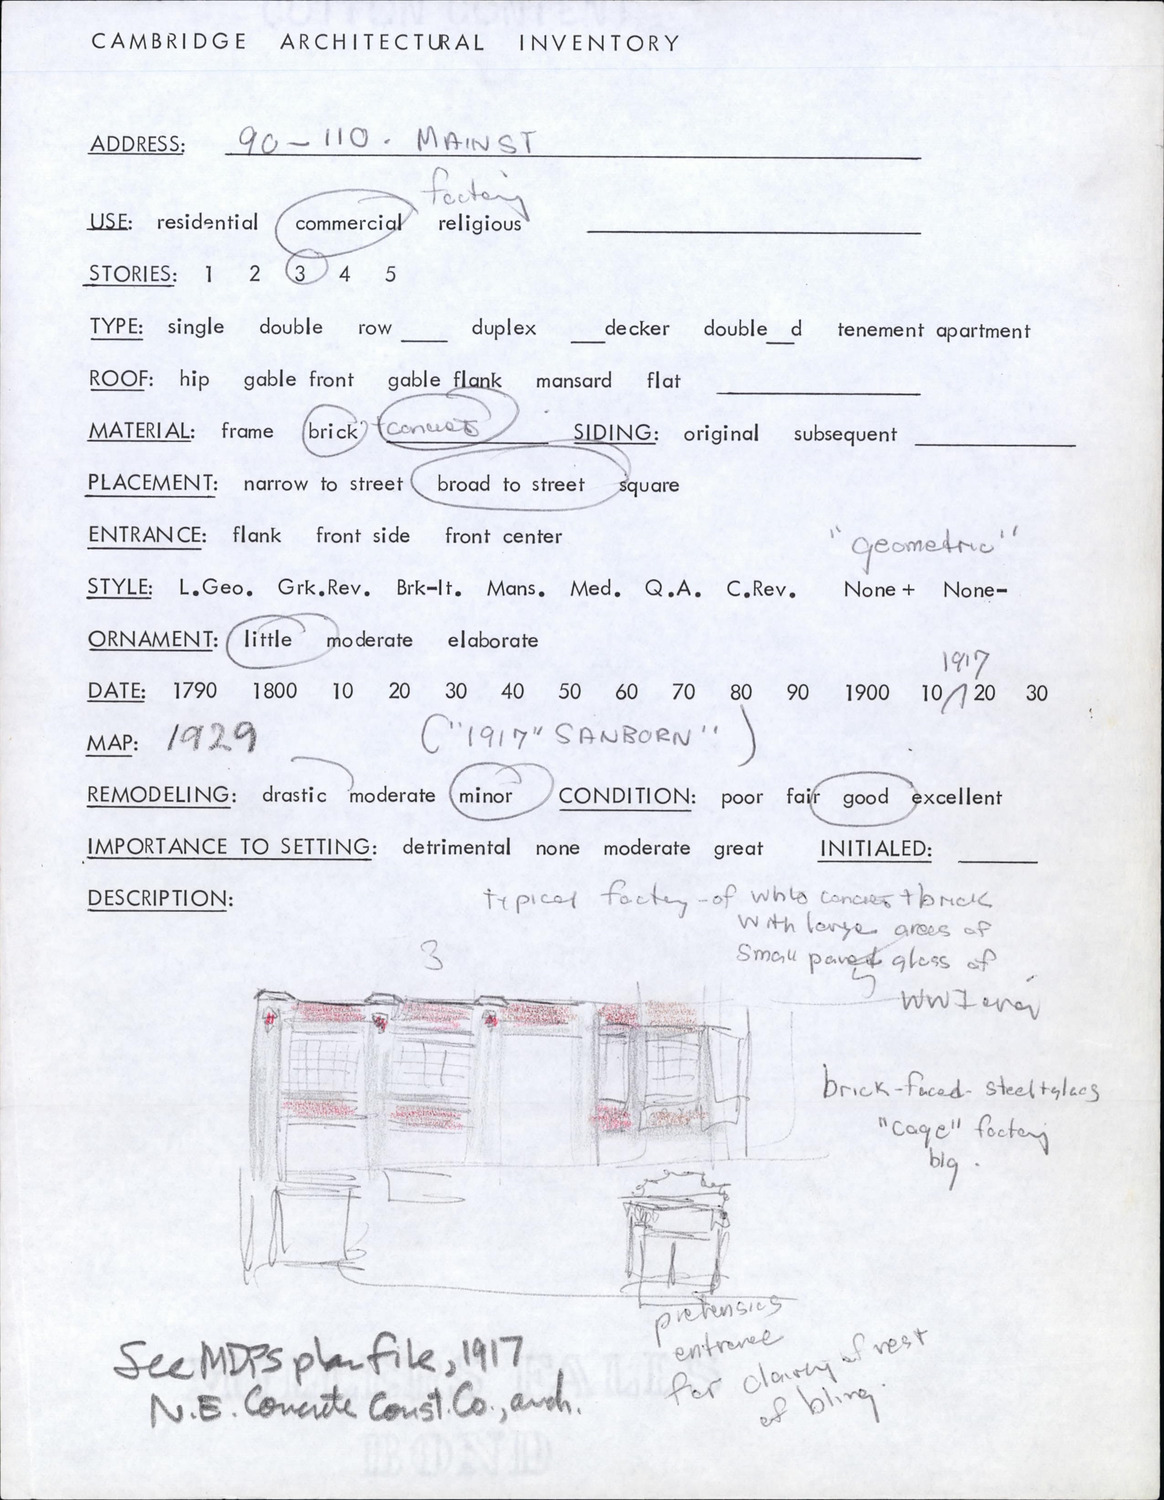 CAMBRIDGE ARCHITECTURAL INVENTORY
ADDRESS: 90-110. MAIN ST
factory
USE: residential commercial religious
STORIES: 1 2 3 4 5
TYPE: single double row ___ duplex ___decker double__d tenement apartment
ROOF: hip gable front gable flank mansard flat
MATERIAL: frame brick + concrete SIDING: original subsequent
PLACEMENT: narrow to street broad to street square
ENTRANCE: flank front side front center
"geometric"
STYLE: L.Geo. Grk.Rev. Brk-It. Mans. Med. Q.A. C.Rev. None + None-
ORNAMENT: little moderate elaborate
1917
DATE: 1790 1800 10 20 30 40 50 60 70 80 90 1900 10 20 30
MAP: 1929 ("1917" SANBORN")
REMODELING: drastic moderate minor CONDITION: poor fair good excellent
IMPORTANCE TO SETTING: detrimental none moderate great INITIALED:
DESCRIPTION: typical factory - of white concrete + brick
with large areas of
small paned glass of
WWI era
3
brick-faced-steel+glass
"cage" factory
blg.
entrance
of rest
for
of
See MDPS plan file, 1917
N.E. Concrete Const. Co., arch.